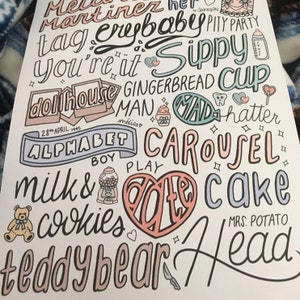 Melanie
Martinez her
tag crybaby PITY PARTY
you're it Sippy
cup
dollhouse GINGERBREAD
MAN MAD hatter
28TH APRIL 1995
ALPHABET CAROUSEL
BOY PLAY
milk & DATE cake
cookies MRS. POTATO
teddybear Head